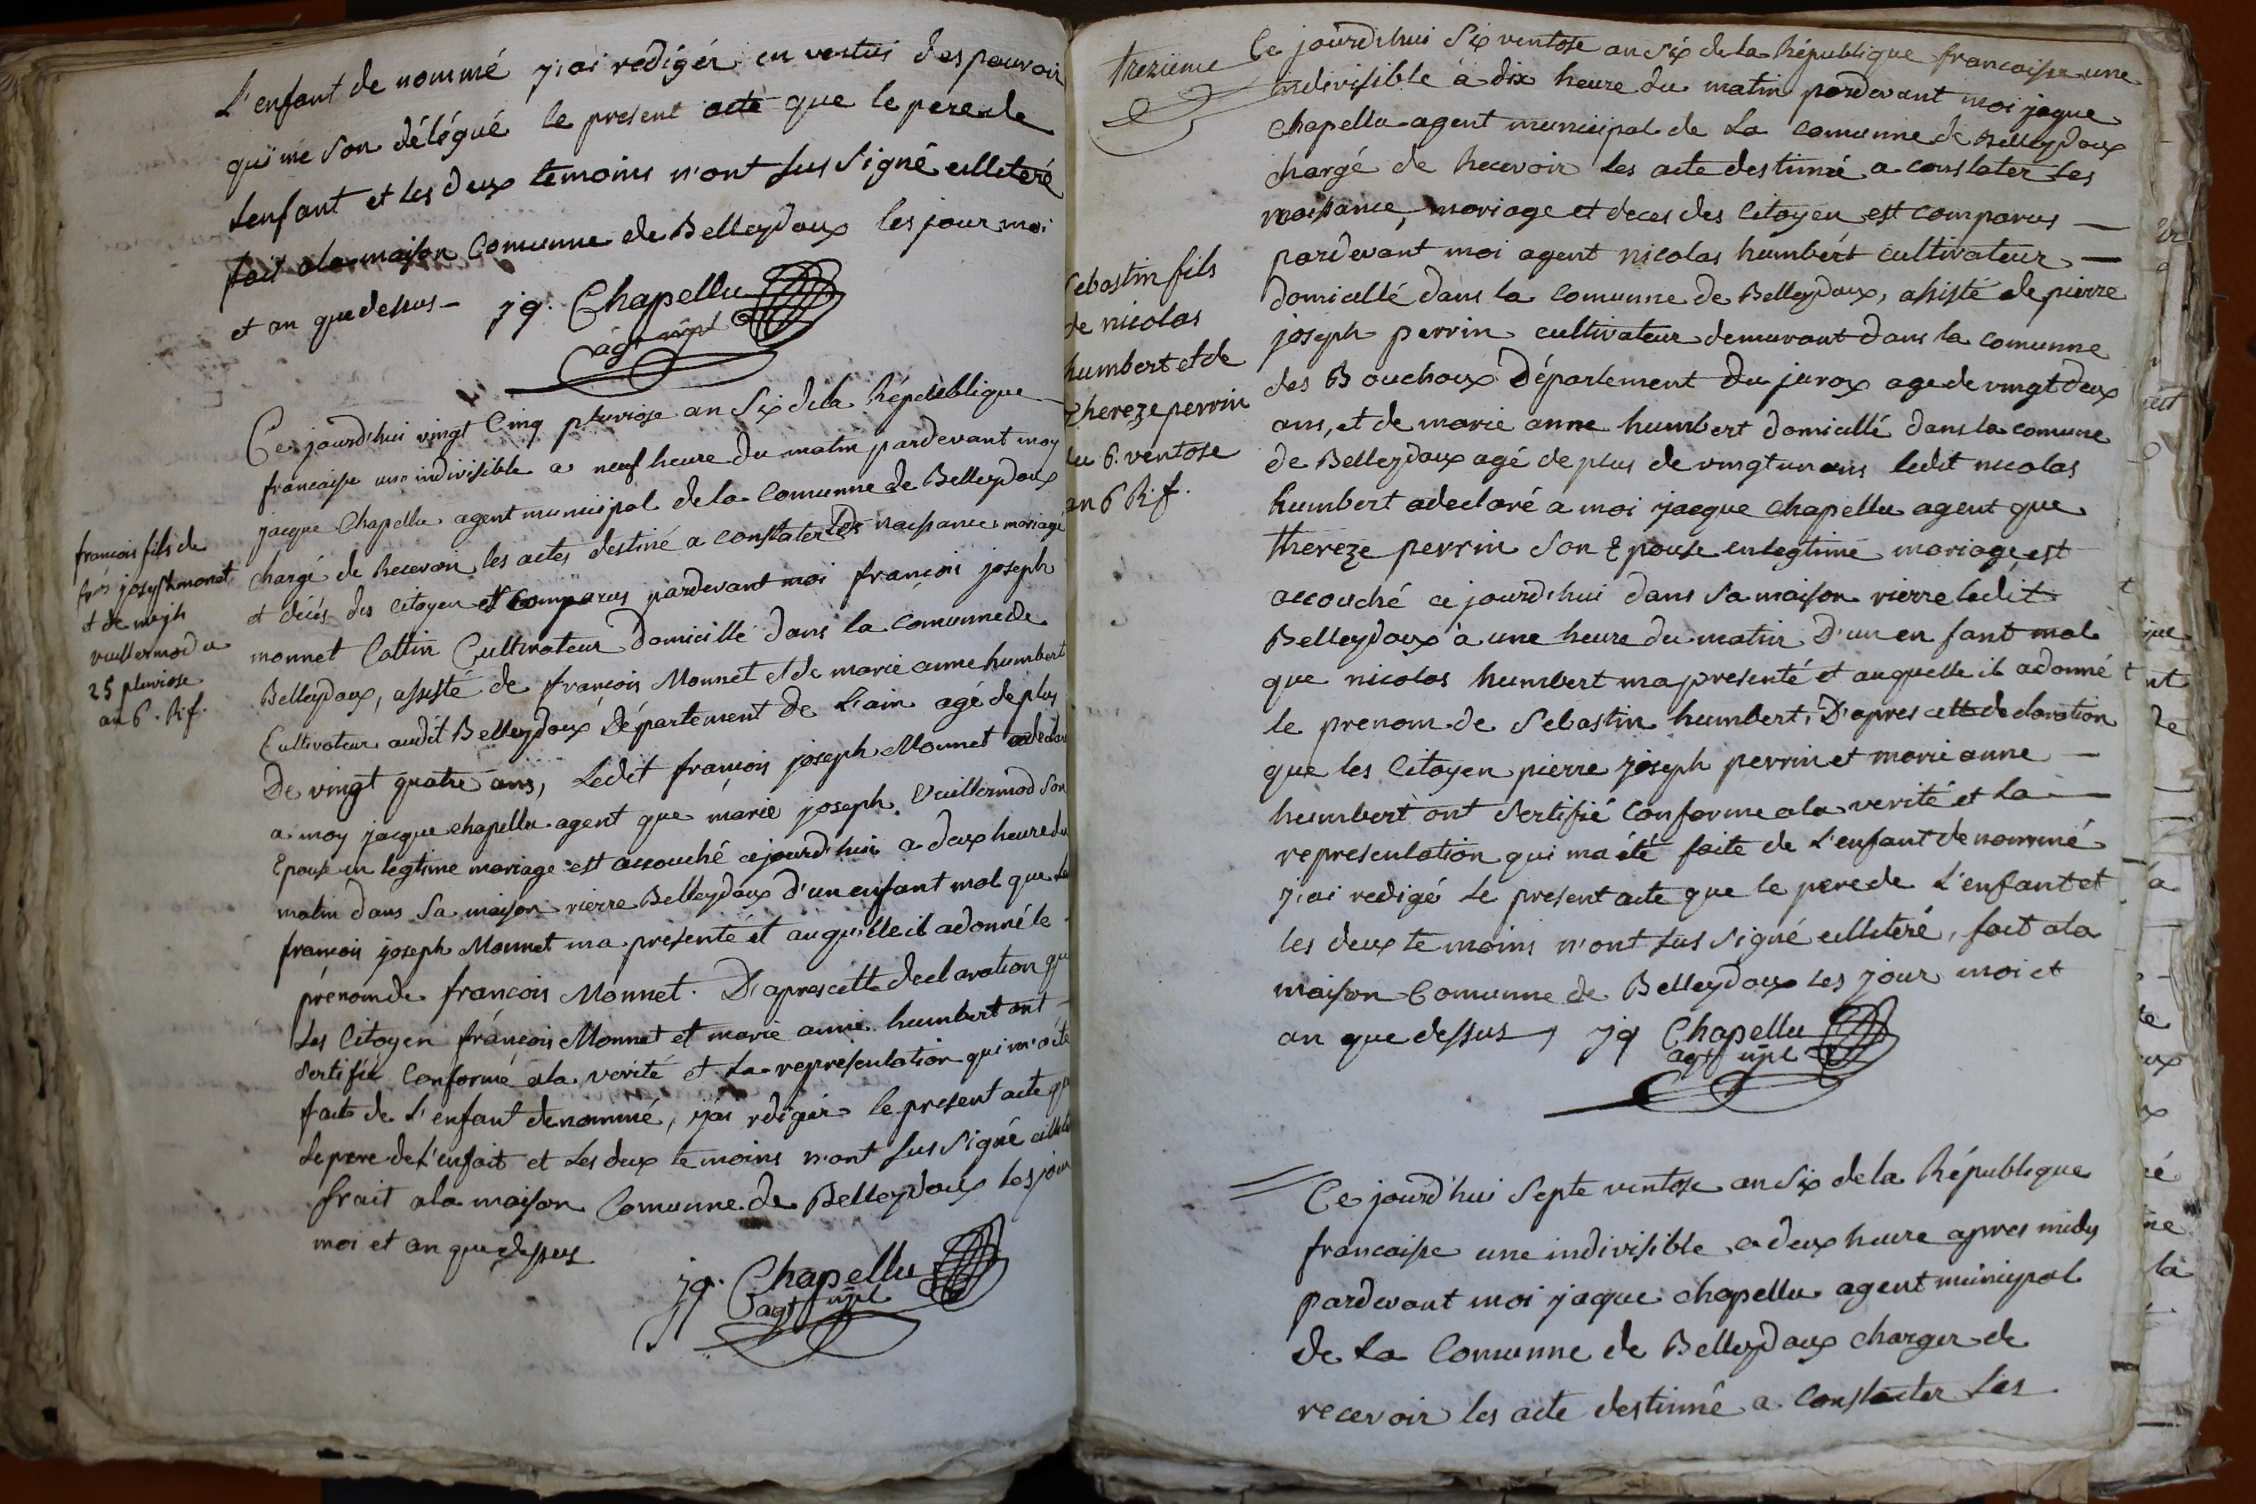 L'enfant de nommé j'ai redigér en vertus des pouvoir
qui me son délégué le present acte que le pere de
Lenfant et les deux temoins n'ont sus signé illeteré
fait ala maison Comunne de Belleydoux les jour moi
et an que dessus _ jq. Chapellu
agt mpl
françois fils de
frcs joseph monet
et de m jh
vuillermod du
25 pluviose
an 6. R.f.
Ce jourd'hui vingt Cinq pluviose an Six dela République
francaisse une indivisible a neuf heure du matin pardevant moy
jacque Chapellu agent municipal de la Comunne de Belleydoux
chargé de Recevoir les actes destiné a constater les naissance mariage
et décés des citoyen est comparus pardevant moi françois joseph
monnet Cattin Cultivateur domicillé dans la comunne de
Belleydoux, assisté de françois Monnet et de marie anne humbert
Cultivateur audit Belleydoux Département de L'ain agé de plus
De vingt quatre ans, Ledit françois joseph Monnet adeclaré
a moy jacque chapellu agent que marie joseph Vuillermod son
Epouse en legtime mariage est accouché cejourd'hui a deux heure du
matin dans Sa maison rierre Belleydoux d'un enfant mal que
françois joseph Monnet ma presenté et auquelle il adonné le
prénom de françois Monnet. D'apres cette declaration que
Les Citoyen françois Monnet et marie anne humbert ont
Sertifié Conforme ala verité et La representation qui m'a été
faite de L'enfant denommé, j'ai rdigér le present acte que
Le pere de L'enfait et Les deux temoins n'ont sus signé
frait ala maison Comunne de Belleydoux les jour
moi et an que dessus
jq. Chapellu
agt mpl
trezieme
Sebastin fils
de nicolas
humbert et de
thereze perrin
du 6. ventose
an 6 R.f.
Ce jourd'hui Six ventose an six de la République francaisse une
indivisible à dix heure du matin pardevant moi jaque
Chapellu agent municipal de La comunne de Belleydoux
chargé de Recevoir Les acte destinné a constater Les
naissance, mariage et deces des Citoyen est comparus _
pardevant moi agent nicolas humbert cultivateur _
domicillé dans la comunne de Belleydoux, assisté de pierre
joseph perrin cultivateur demurant dans la comunne
des Bouchoux Département du jurax age de vingt deux
ans, et de marie anne humbert domicillé dans la comune
de Belleydoux agé de plus de vingt un ans ledit nicolas
humbert adeclaré a moi jacque chapellu agent que
thereze perrin Son Epouse en legtime mariage est
accouché ce jourd'hui dans Sa maison rierre ledit
Belleydoux à une heure du matin D'un en fant mal
que nicolas humbert ma presenté et auquelle il adonné
le prenom de Sebastin humbert, D'apres cette declaration
que les Citoyen pierre joseph perrin et marie anne _
humbert ont Sertifié Conforme ala verité et La _
representation qui ma été faite de L'enfant denommé
j'ai redigé Le present acte que le pere de L'enfant et
les deux te moins n'ont sus signé illeteré, fait ala
maison Comunne de Belleydoux Les jour moi et
an que dessus, jq Chapellu
agt mpl
Ce jourd'hui Septe ventose an Six de la République
francaisse une indivisible a deux heure apres midy
pardevant moi jaque chapellu agent municipal
de La Comunne de Belleydoux charger de
recevoir les acte destinné a Constater Les